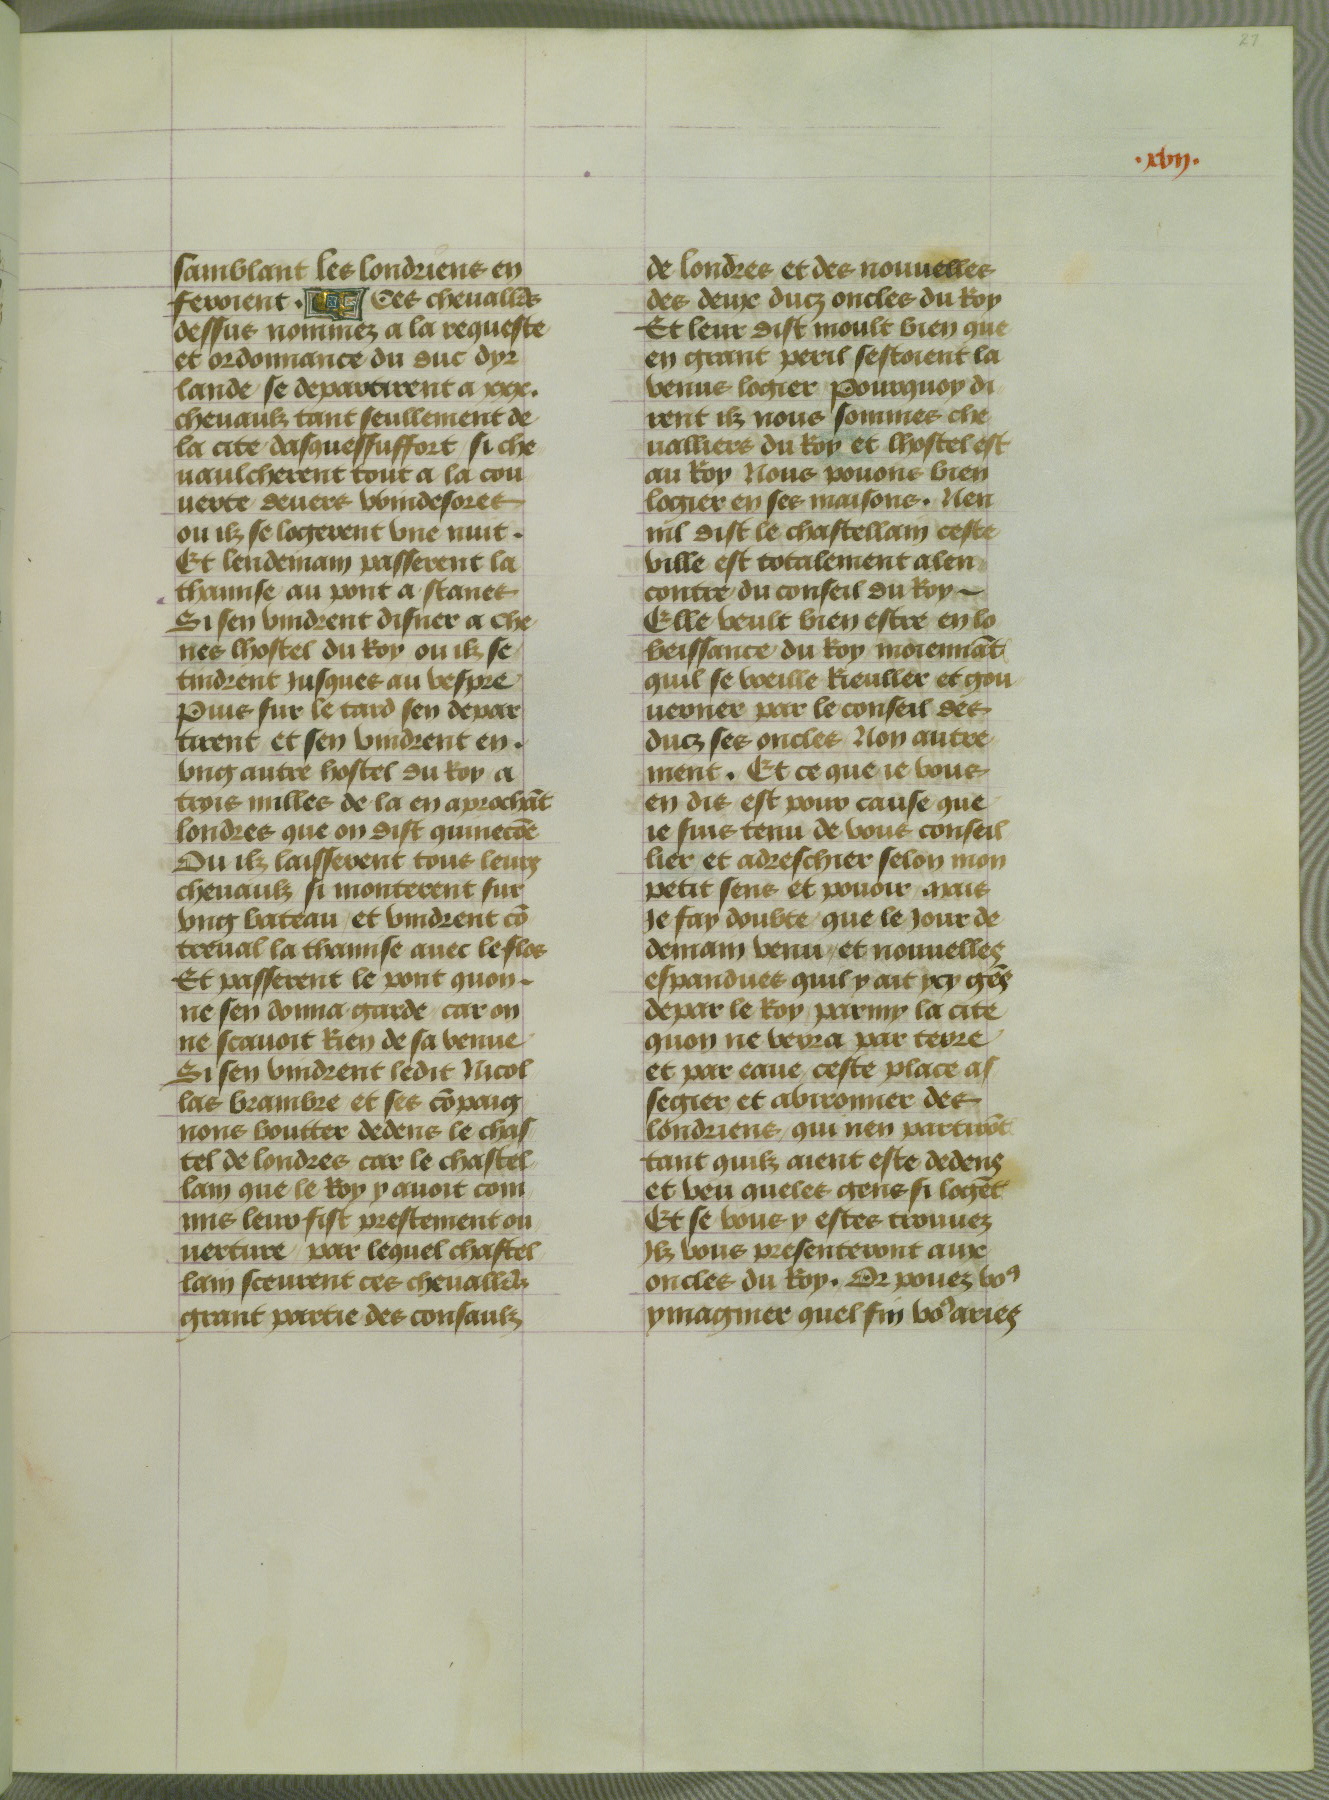 27
.xvij.
samblant les londriens en
feroient . Ces cheualle͛s
dessus nommez a la requeste
et ordonnance du duc dyr
lande se departirent a xxx.
cheuaulz tant seullement de
la cite dasquessuffort si che
uaulcherent tout a la cou
uerte deuers vvindesores
ou ilz se logerent vne nuit .
Et lendemain passerent la
thamise au pont a stanes
Si sen vindrent disner a che
nes lhostel du Roy ou ilz se
tindrent Jusques au vespre
Puis sur le tard sen depar
tirent et sen vindrent en .
vng autre hostel du Roy a
trois milles de la en aprochāt
londres que on dist quinecōe
Ou ilz laisserent tous leurs
cheuaulz si monterent sur
vng bateau et vindrent cō
treual la thamise auec le flos
Et passerent le pont quon
ne sen donna garde car on
ne scauoit Rien de sa venue
Si sen vindrent ledit Nicol
las brambre et ses cōpaig
nons boutter dedens le chas
tel de londres car le chastel
lain que le Roy y auoit com
mis leur fist prestement ou
uerture par lequel chastel
lain sceurent ces cheualle͛s
grant partie des consaulz
de londres et des nouuelles
des deux ducz oncles du Roy
Et leur dist moult bien que
en grant peril sestoient la
venus logier Pourquoy di
rent ilz nous sommes che
ualliers du Roy et lhostel est
au Roy Nous pouons bien
logier en ses maisons . Nen
nil dist le chastellain ceste
ville est totalement a len
contre du conseil du Roy
Elle veult bien estre en lo
beissance du Roy moiennāt
quil se voeille Rieuller et gou
uerner par le conseil des
ducz ses oncles Non autre
ment . Et ce que ie vous
en dis est pour cause que
ie suis tenu de vous conseil
lier et adreschier selon mon
petit sens et pouoir mais
Je fay doubte que le Jour de
demain venu et nouuelles
espandues quil y ait ycy gēs
de par le Roy parmy la cite
quon ne verra par terre
et par eaue ceste place as
segier et abironner des
londriens qui nen partirōt
tant quilz aient este dedens
et veu queles gens si logēt
Et se vous y estes trouuez
Ilz vous presenteront aux
oncles du Roy . Or pouez voꝰ
ymaginer quel fin voꝰ aries